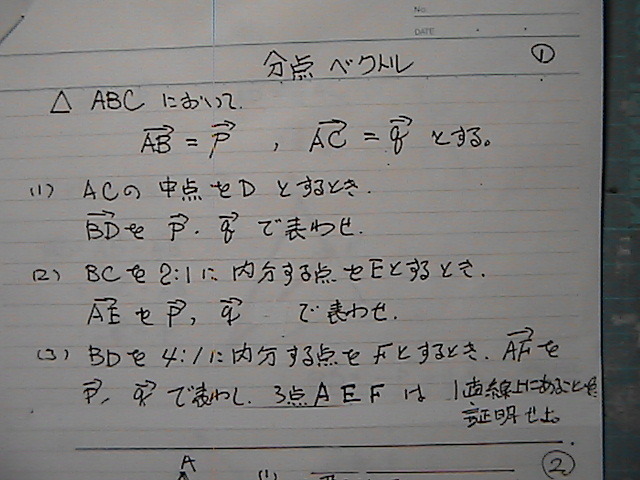 No.
DATE
分点 ベクトル ①
△ ABC において.
AB = P , AC = q とする。
(1) ACの 中点をD とするとき.
BDを P. q で表わせ.
(2) BCを 2:1に内分する点をEとするとき.
AE を P, q で表わせ.
(3) BDを 4:1に内分する点を Fとするとき. AFを
P, q で表わし. 3点 A E F は 1直線上にあることを
証明せよ。
②
A
(1)